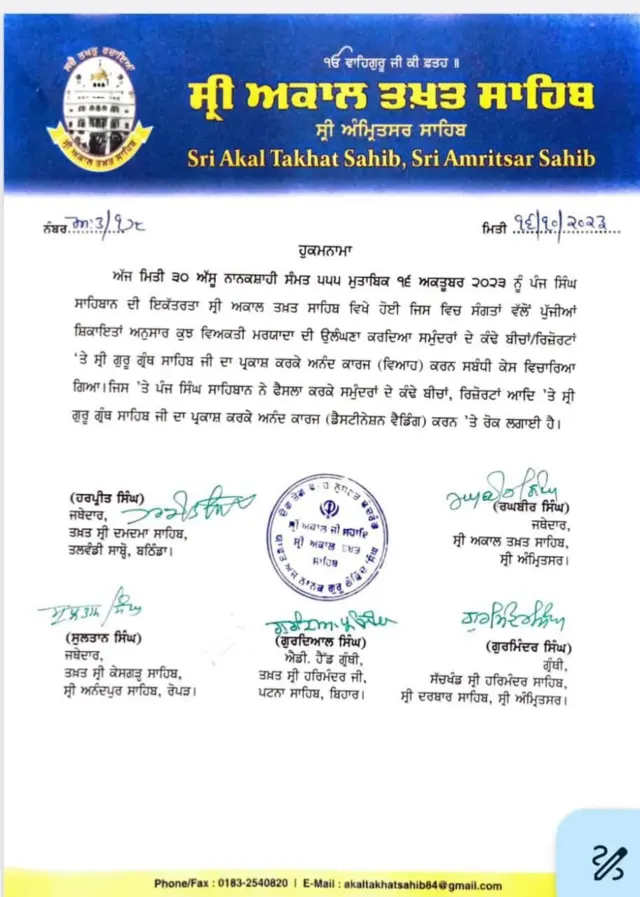 ੴ ਵਾਹਿਗੁਰੂ ਜੀ ਕੀ ਫ਼ਤਹ ॥
ਸ੍ਰੀ ਅਕਾਲ ਤਖ਼ਤ ਸਾਹਿਬ
ਸ੍ਰੀ ਅੰਮ੍ਰਿਤਸਰ ਸਾਹਿਬ
Sri Akal Takhat Sahib, Sri Amritsar Sahib
ਸਚੋ ਤਖਤੁ ਰਚਾਇਆ
ਸ੍ਰੀ ਅਕਾਲ ਤਖ਼ਤ ਸਾਹਿਬ
ਨੰਬਰ ਅ:3/੧੭੮ ਮਿਤੀ ੧੬/੧੦/੨੦੨੩
ਹੁਕਮਨਾਮਾ
ਅੱਜ ਮਿਤੀ ੩੦ ਅੱਸੂ ਨਾਨਕਸ਼ਾਹੀ ਸੰਮਤ ੫੫੫ ਮੁਤਾਬਿਕ ੧੬ ਅਕਤੂਬਰ ੨੦੨੩ ਨੂੰ ਪੰਜ ਸਿੰਘ
ਸਾਹਿਬਾਨ ਦੀ ਇਕੱਤਰਤਾ ਸ੍ਰੀ ਅਕਾਲ ਤਖ਼ਤ ਸਾਹਿਬ ਵਿਖੇ ਹੋਈ ਜਿਸ ਵਿਚ ਸੰਗਤਾਂ ਵੱਲੋਂ ਪੁੱਜੀਆਂ
ਸ਼ਿਕਾਇਤਾਂ ਅਨੁਸਾਰ ਕੁਝ ਵਿਅਕਤੀ ਮਰਯਾਦਾ ਦੀ ਉਲੰਘਣਾ ਕਰਦਿਆ ਸਮੁੰਦਰਾਂ ਦੇ ਕੰਢੇ ਬੀਚਾਂ/ਰਿਜ਼ੋਰਟਾਂ
'ਤੇ ਸ੍ਰੀ ਗੁਰੂ ਗ੍ਰੰਥ ਸਾਹਿਬ ਜੀ ਦਾ ਪ੍ਰਕਾਸ਼ ਕਰਕੇ ਅਨੰਦ ਕਾਰਜ (ਵਿਆਹ) ਕਰਨ ਸਬੰਧੀ ਕੇਸ ਵਿਚਾਰਿਆ
ਗਿਆ।ਜਿਸ 'ਤੇ ਪੰਜ ਸਿੰਘ ਸਾਹਿਬਾਨ ਨੇ ਫੈਸਲਾ ਕਰਕੇ ਸਮੁੰਦਰਾਂ ਦੇ ਕੰਢੇ ਬੀਚਾਂ, ਰਿਜ਼ੋਰਟਾਂ ਆਦਿ 'ਤੇ ਸ੍ਰੀ
ਗੁਰੂ ਗ੍ਰੰਥ ਸਾਹਿਬ ਜੀ ਦਾ ਪ੍ਰਕਾਸ਼ ਕਰਕੇ ਅਨੰਦ ਕਾਰਜ (ਡੈਸਟੀਨੇਸ਼ਨ ਵੈਡਿੰਗ) ਕਰਨ 'ਤੇ ਰੋਕ ਲਗਾਈ ਹੈ।
(ਹਰਪ੍ਰੀਤ ਸਿੰਘ)
ਜਥੇਦਾਰ,
ਤਖ਼ਤ ਸ੍ਰੀ ਦਮਦਮਾ ਸਾਹਿਬ,
ਤਲਵੰਡੀ ਸਾਬ੍ਹੋ, ਬਠਿੰਡਾ।
ਸ੍ਰੀ ਅਕਾਲ ਜੀ ਸਹਾਇ
ਸ੍ਰੀ ਅਕਾਲ ਤਖਤ
ਸਾਹਿਬ
(ਰਘਬੀਰ ਸਿੰਘ)
ਜਥੇਦਾਰ,
ਸ੍ਰੀ ਅਕਾਲ ਤਖ਼ਤ ਸਾਹਿਬ,
ਸ੍ਰੀ ਅੰਮ੍ਰਿਤਸਰ।
(ਸੁਲਤਾਨ ਸਿੰਘ)
ਜਥੇਦਾਰ,
ਤਖ਼ਤ ਸ੍ਰੀ ਕੇਸਗੜ੍ਹ ਸਾਹਿਬ,
ਸ੍ਰੀ ਅਨੰਦਪੁਰ ਸਾਹਿਬ, ਰੋਪੜ।
(ਗੁਰਦਿਆਲ ਸਿੰਘ)
ਐਡੀ. ਹੈੱਡ ਗ੍ਰੰਥੀ,
ਤਖ਼ਤ ਸ੍ਰੀ ਹਰਿਮੰਦਰ ਜੀ,
ਪਟਨਾ ਸਾਹਿਬ, ਬਿਹਾਰ।
(ਗੁਰਮਿੰਦਰ ਸਿੰਘ)
ਗ੍ਰੰਥੀ,
ਸੱਚਖੰਡ ਸ੍ਰੀ ਹਰਿਮੰਦਰ ਸਾਹਿਬ,
ਸ੍ਰੀ ਦਰਬਾਰ ਸਾਹਿਬ, ਸ੍ਰੀ ਅੰਮ੍ਰਿਤਸਰ।
Phone/Fax : 0183-2540820 | E-Mail : akaltakhatsahib84@gmail.com